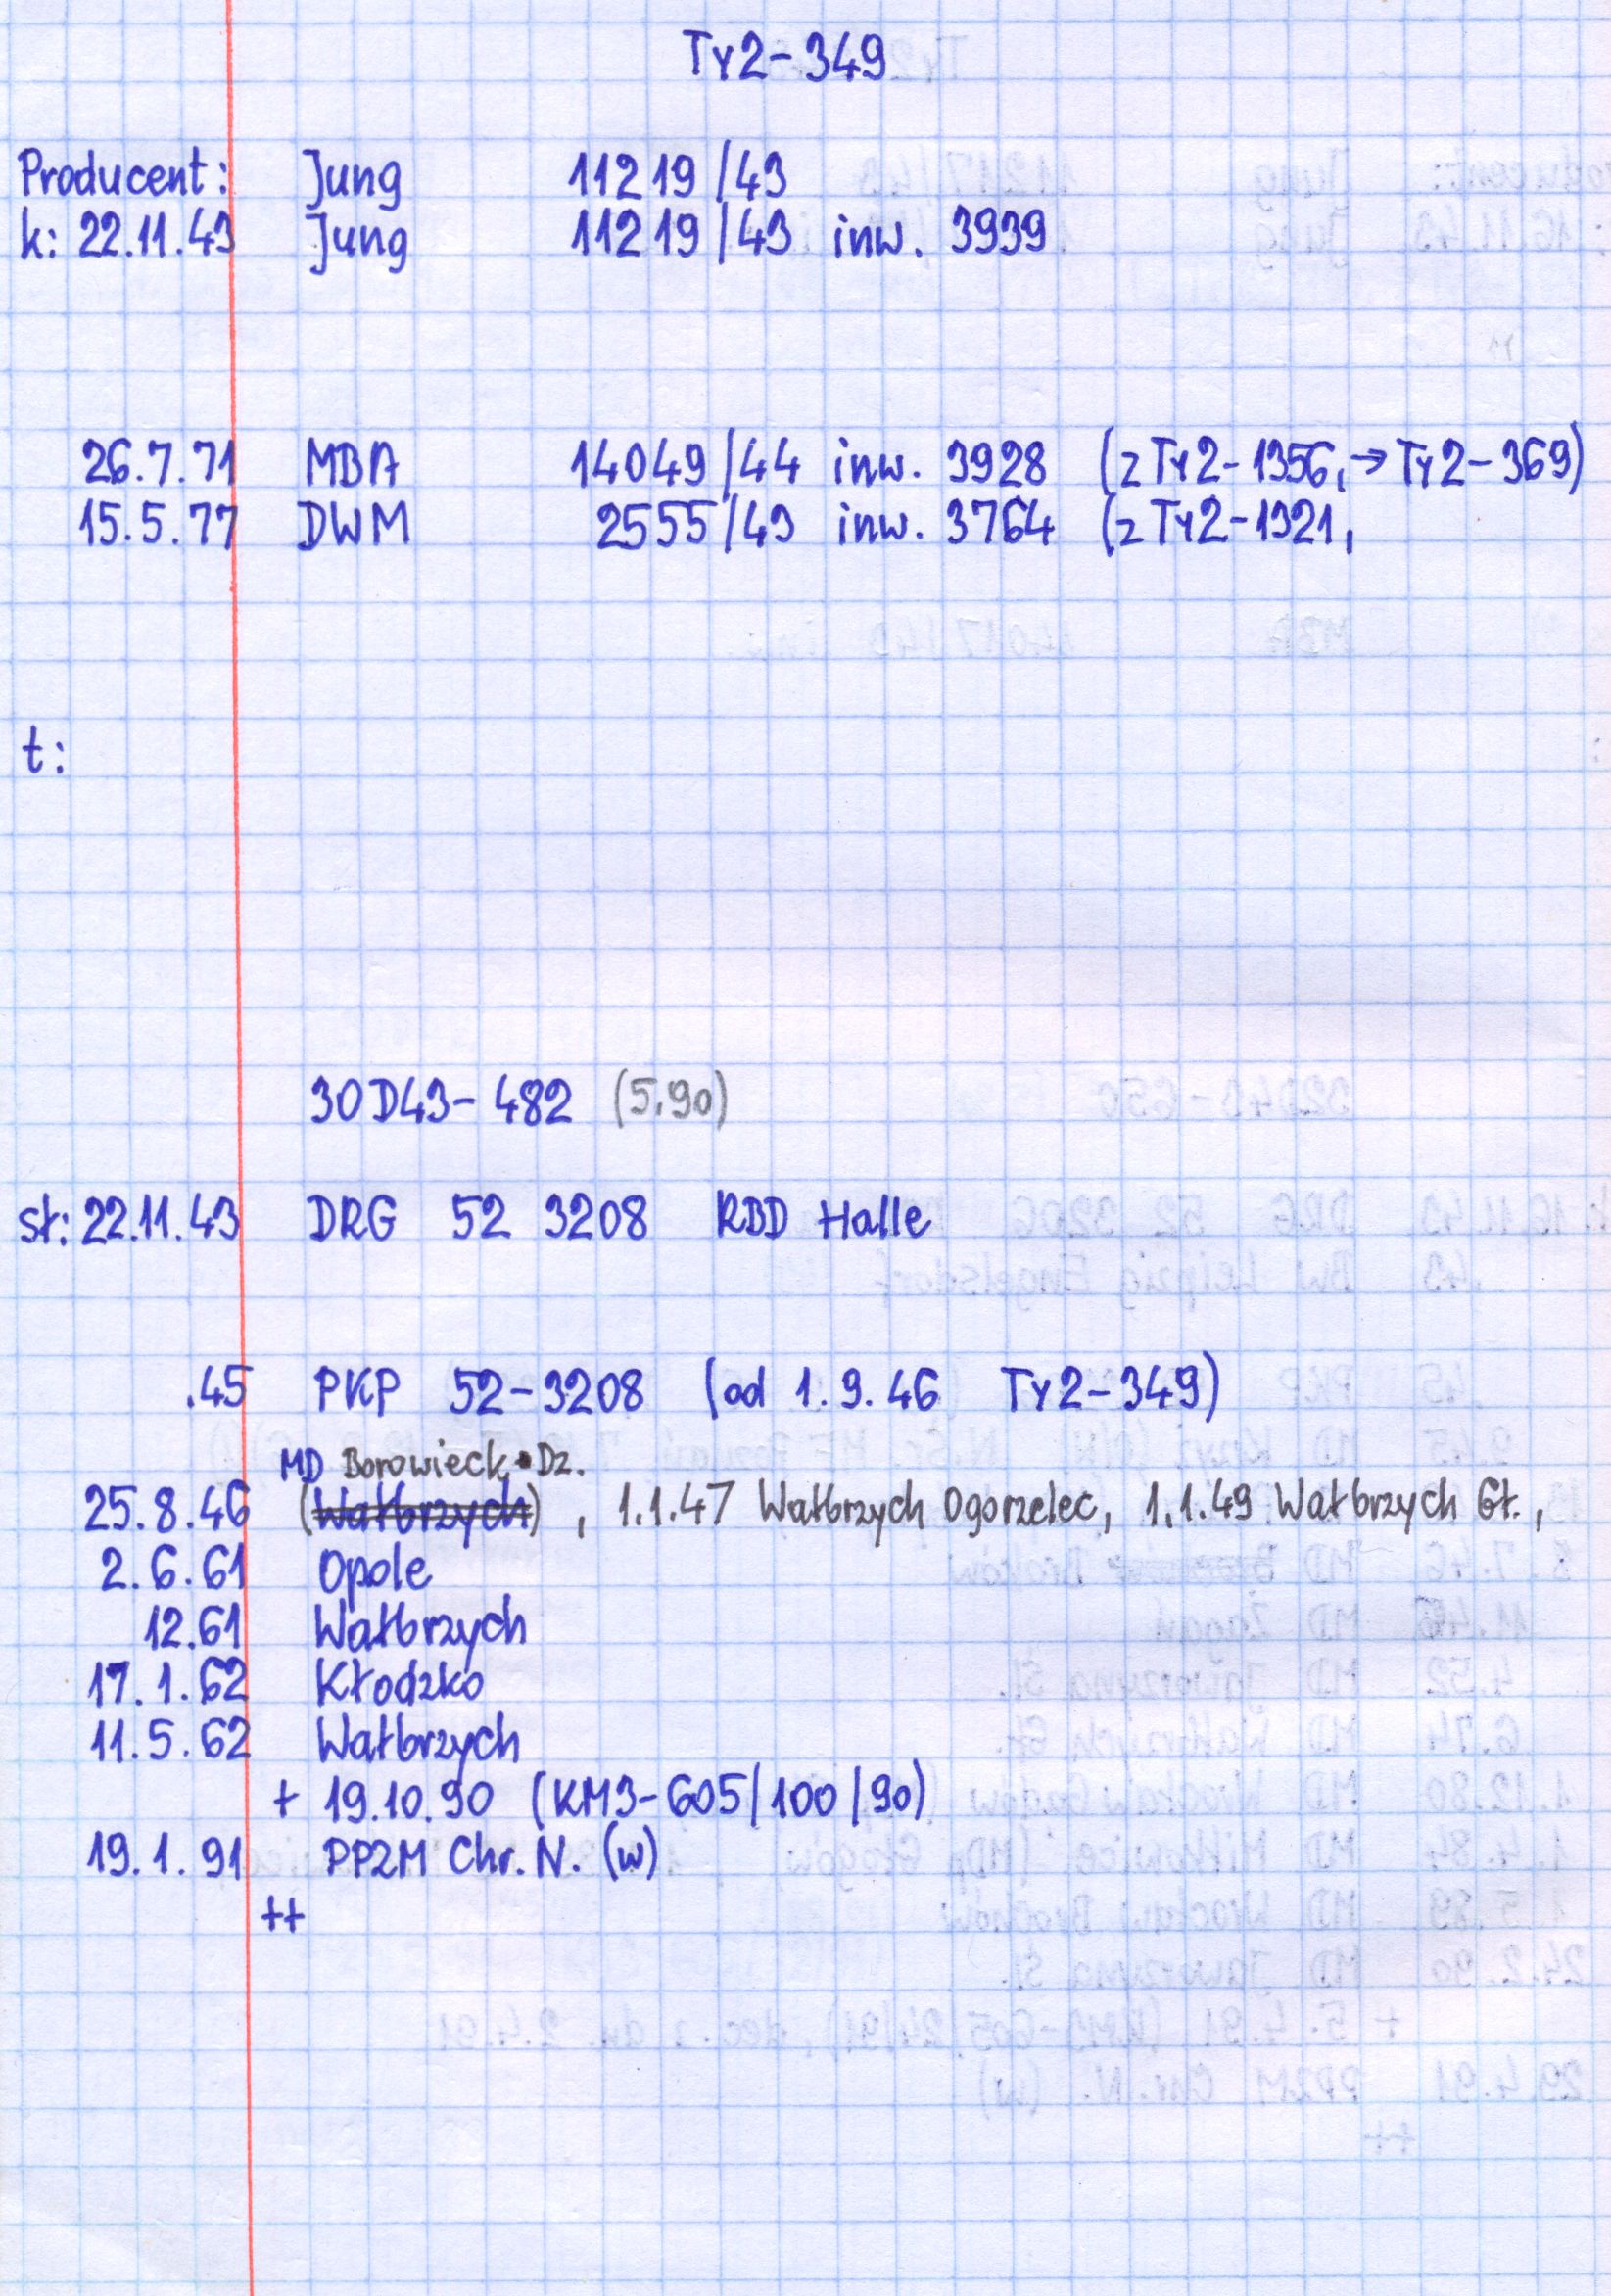 Ty2-349
Producent: Jung 11219/43
k: 22.11.43 Jung 11219/43 inw. 3939
26.7.71 MBA 14049/44 inw. 3928 (z Ty2-1356, → Ty2-369)
15.5.77 DWM 2555/43 inw. 3764 (z Ty2-1321,
t:
30D43-482 (5.90)
st: 22.11.43 DRG 52 3208 RBD Halle
.45 PKP 52-3208 (od 1.9.46 Ty2-349)
MD Borowieck Dz.
25.8.46 (Wałbrzych), 1.1.47 Wałbrzych Ogorzelec, 1.1.49 Wałbrzych Gł.,
2.6.61 Opole
12.61 Wałbrzych
17.1.62 Kłodzko
11.5.62 Wałbrzych
+ 19.10.90 (KM3-605/100/90)
19.1.91 PPZM Chr. N. (w)
++